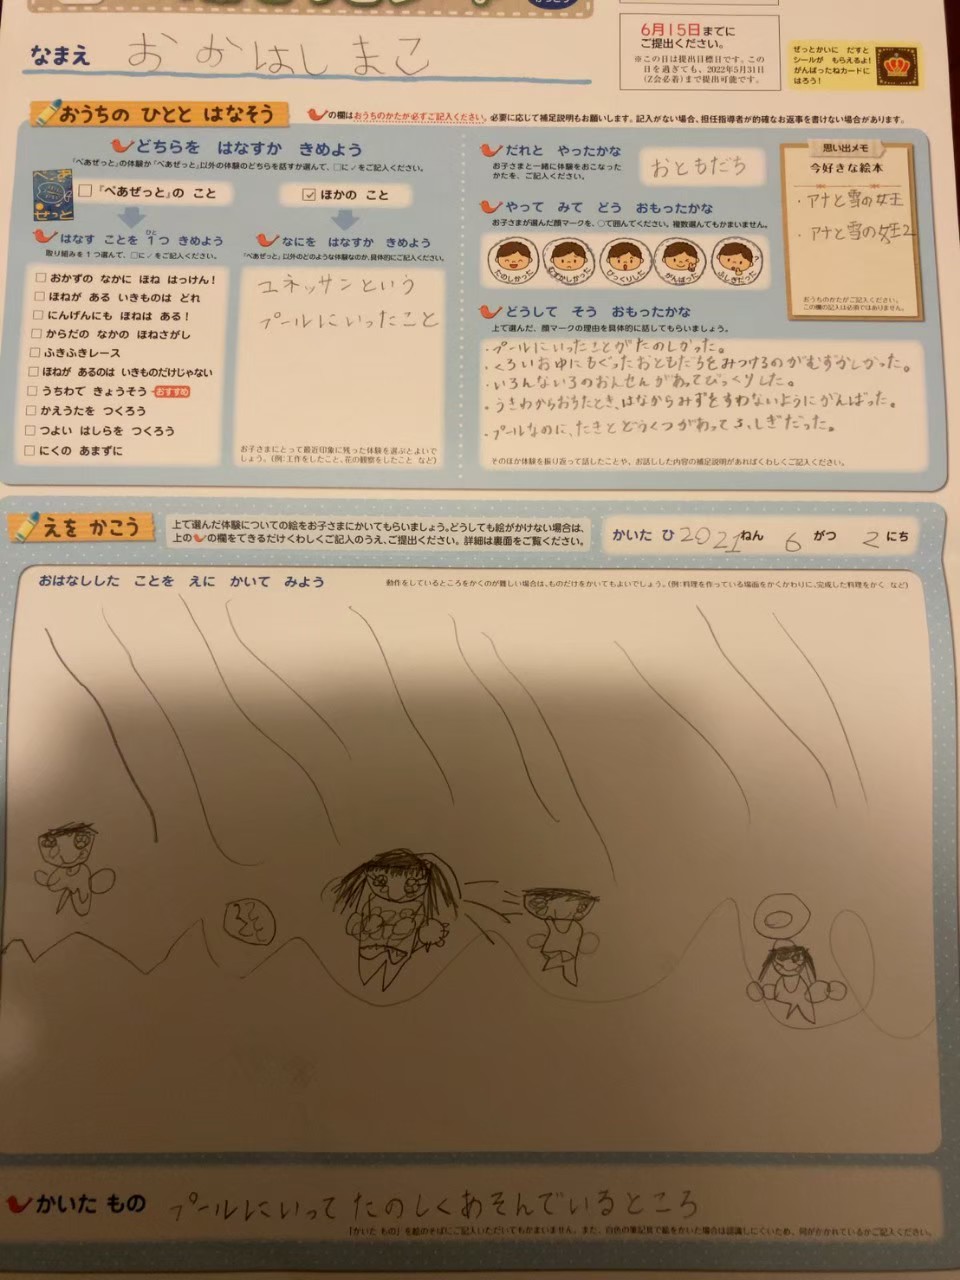 なまえ おかはし まこ
6月15日までに
ご提出ください。
※この日は提出目標日です。この
日を過ぎても、2022年5月31日
(Z会必着)まで提出可能です。
ぜっとかいに だすと
シールが もらえるよ!
がんばったねカードに
はろう!
おうちの ひとと はなそう
の欄はおうちのかたが必ずご記入ください。必要に応じて補足説明もお願いします。記入がない場合、担任指導者が的確なお返事を書けない場合があります。
どちらを はなすか きめよう
「ぺあぜっと」の体験か「ぺあぜっと」以外の体験のどちらを話すか選んで、□に✓をご記入ください。
□「ぺあぜっと」の こと
☑ ほかの こと
はなす ことを 1つ きめよう
ひと
取り組みを1つ選んで、□に✓をご記入ください。
□ おかずの なかに ほね はっけん!
□ ほねが ある いきものは どれ
□ にんげんにも ほねは ある!
□ からだの なかの ほねさがし
□ ふきふきレース
□ ほねが あるのは いきものだけじゃない
□ うちわて きょうそう おすすめ
□ かえうたを つくろう
□ つよい はしらを つくろう
□ にくの あまずに
なにを はなすか きめよう
「ぺあぜっと」以外のどのような体験なのか、具体的にご記入ください。
ユネッサンという
プールにいったこと
お子さまにとって最近印象に残った体験を選ぶとよいで
しょう。(例:工作をしたこと、花の観察をしたこと など)
だれと やったかな
お子さまと一緒に体験をおこなった
かたを、ご記入ください。
おともだち
やって みて どう おもったかな
お子さまが選んだ顔マークを、○で囲んでください。複数選んでもかまいません。
たのしかった
むずかしかった
びっくりした
がんばった
ふしぎだった
どうして そう おもったかな
上で選んだ、顔マークの理由を具体的に話してもらいましょう。
・プールにいったことがたのしかった。
・くろいおゆにもぐったおともだちをみつけるのがむずかしかった。
・いろんないろのおんせんがあってびっくりした。
・うきわからおちたとき、はなからみずをすわないようにがんばった。
・プールなのに、たきとどうくつがあってふしぎだった。
そのほか体験を振り返って話したことや、お話しした内容の補足説明があればくわしくご記入ください。
思い出メモ
今好きな絵本
・アナと雪の女王
・アナと雪の女王2
おうちのかたがご記入ください。
この欄の記入は必須ではありません。
えを かこう
上で選んだ体験についての絵をお子さまにかいてもらいましょう。どうしても絵がかけない場合は、
上の の欄をできるだけくわしくご記入のうえ、ご提出ください。詳細は裏面をご覧ください。
かいた ひ 2021ねん 6 がつ 2 にち
おはなしした ことを えに かいて みよう
動作をしているところをかくのが難しい場合は、ものだけをかいてもよいでしょう。(例:料理を作っている場面をかくかわりに、完成した料理をかく など)
かいた もの プールにいって たのしくあそんでいるところ
「かいた もの」を絵のそばにご記入いただいてもかまいません。また、白色の筆記具で絵をかいた場合は認識しにくいため、何がかかれているかご記入ください。